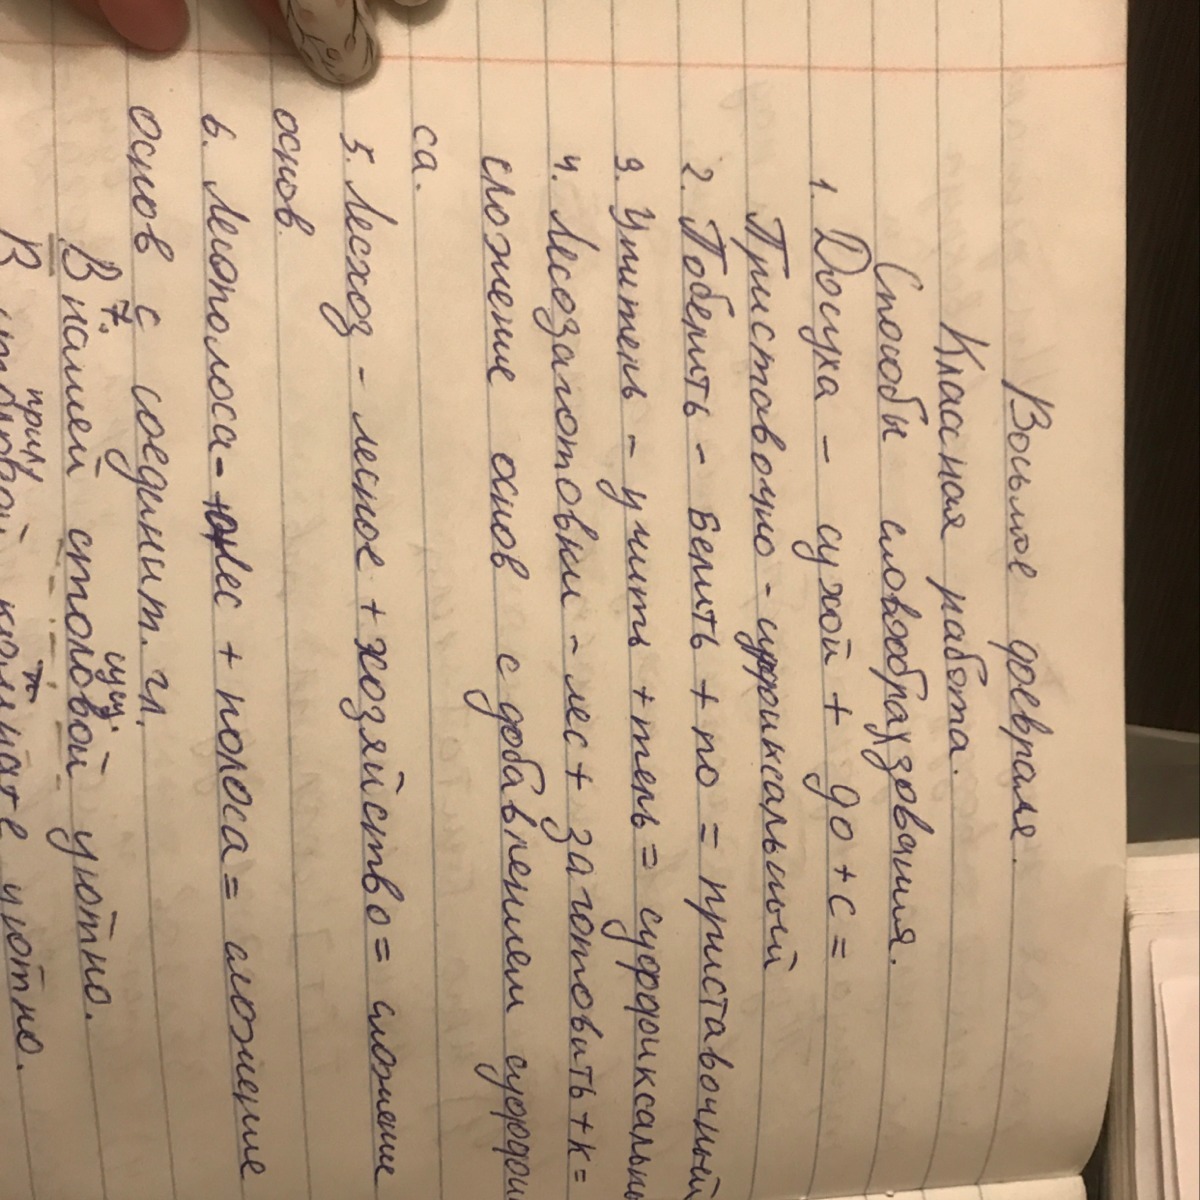 Восьмое февраля.
Классная работа.
Способы словообразования.
1. Досуха - сухой + до + с =
Приставочно - суффиксальный
2. Побелить - Белить + по = приставочный
3. Учитель - учить + тель = суффиксальны
4. Лесозаготовки - лес + заготовить + к =
сложение основ с добавлением суффик
са.
5. Лесхоз - лесное + хозяйство = сложение
основ.
6. Лесополоса - лес + полоса = сложение
основ с соединит. гл.
7.
сущ.
В нашей столовой уютно.
прил.
В столовой комнате уютно.